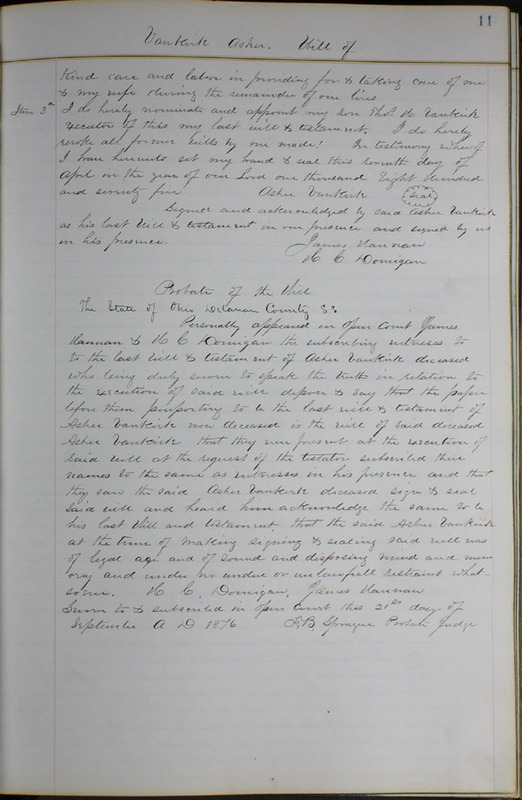 11
Vankirk Asher. Will of
kind care and labor in providing for & taking care of me
& my wife during the remainder of our lives
Item 3d I do hereby nominate and appoint my son Thos. H Vankirk
executor of this my last will & testament, I do hereby
revoke all former wills by me made! In testimony whereof
I have hereunto set my hand & seal this day of
April in the year of our Lord one thousand Eight Hundred
and seventy five Asher Vankirk Seal
Signed and acknowledged by said Asher Vankirk
as his last Will & testament in our presence and signed by us
in his presence. James Hannan
H C Domigan
Probate of the Will
The State of Ohio Delaware County SS
Personally appeared in open Court James
Hannan & H C Domigan the subscribing witnesses to
to the last will & testament of Asher Vankirk deceased
who being duly sworn to speak the truth in relation to
the execution of said will depose & say that the paper
before them purporting to be the last will & testament of
Asher Vankirk now deceased is the will of said deceased
Asher Vankirk that they were present at the execution of
said will at the request of the testator subscribed their
names to the same as witnesses in his presence and that
they saw the said Asher Vankirk deceased sign & seal
said will and heard him acknowledge the same to be
his last Will and testament. that the said Asher Vankirk
at the time of making signing & sealing said will was
of legal age and of sound and disposing mind and mem
ory and under no undue or unlawfull restraint what-
soever. H. C. Domigan, James Hannan
Sworn to & subscribed in open Court this 21st day of
September A D 1876 F.B. Sprague Probate Judge